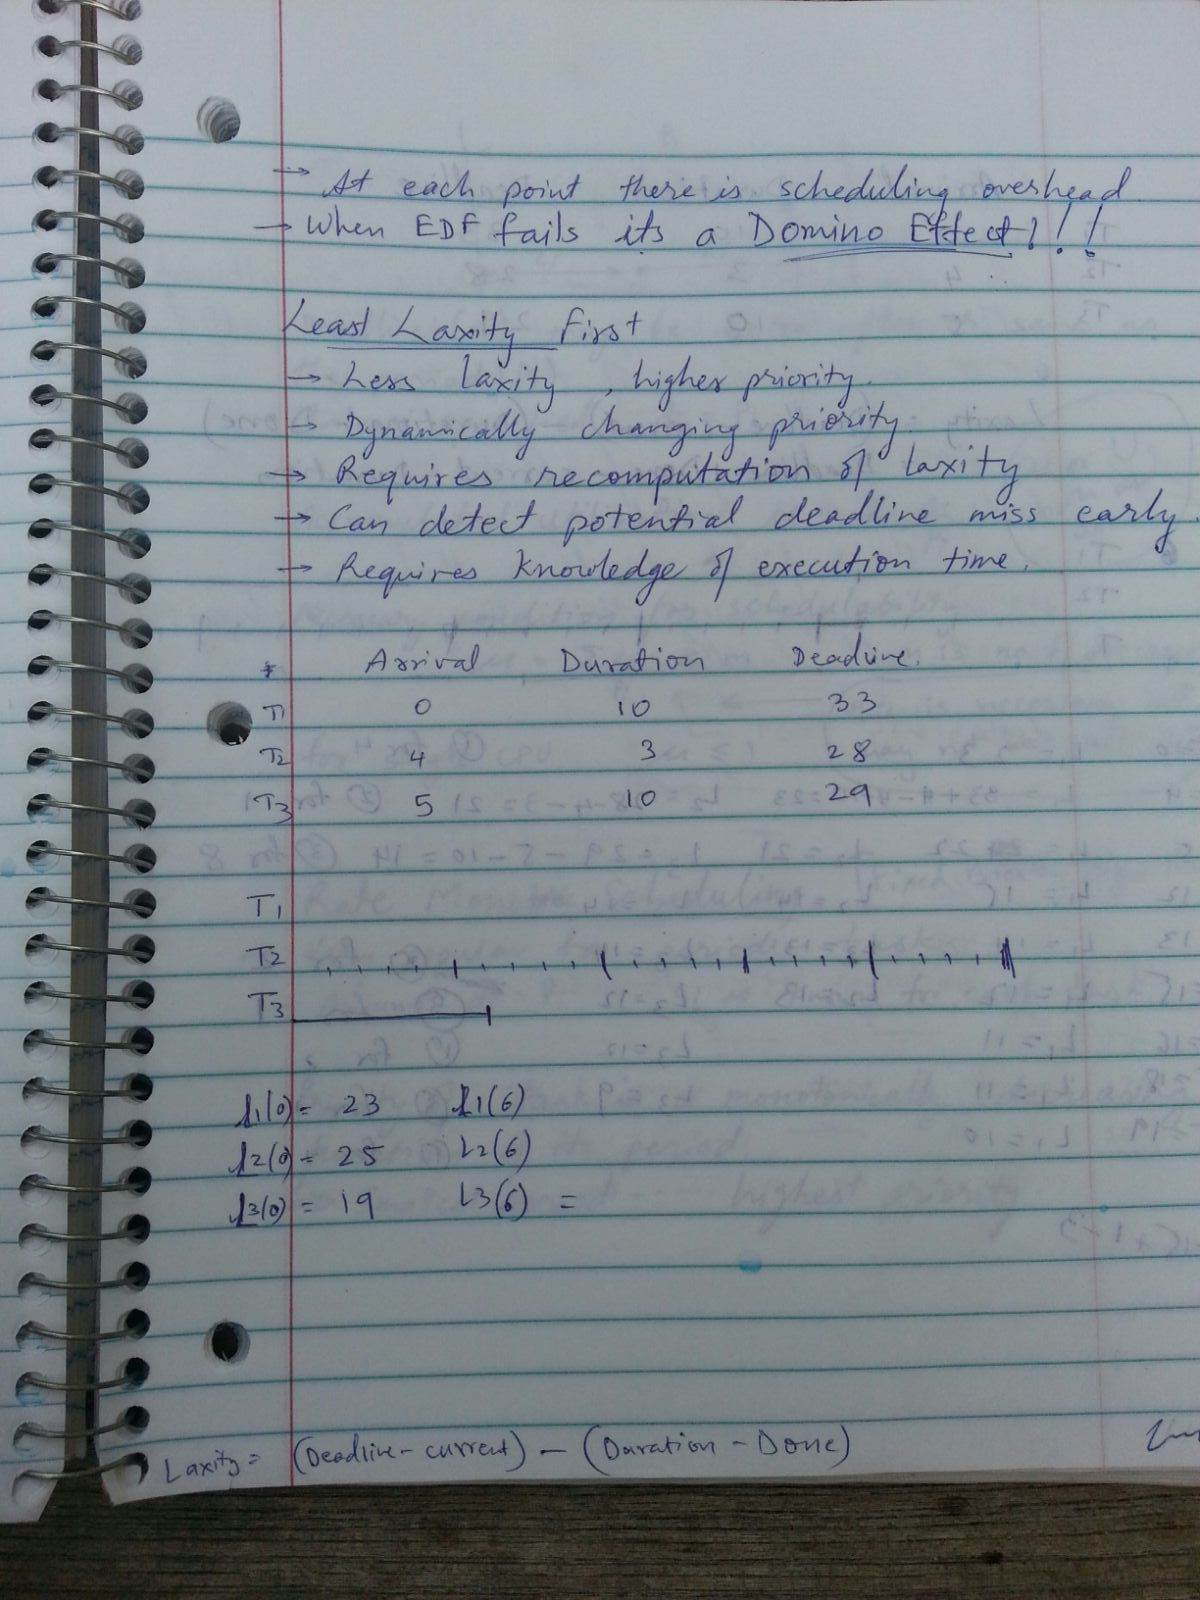 → At each point there is scheduling overhead
→ When EDF fails its a Domino Effect!!!
Least Laxity First
→ Less laxity, higher priority.
→ Dynamically changing priority.
→ Requires recomputation of laxity
→ Can detect potential deadline miss early
→ Requires knowledge of execution time.
Arrival Duration Deadline.
T1 0 10 33
T2 4 3 28
T3 5 10 29
T1
T2
T3
L1(0) = 23 L1(6)
L2(0) = 25 L2(6)
L3(0) = 19 L3(6) =
Laxity = (Deadline - current) - (Duration - Done)